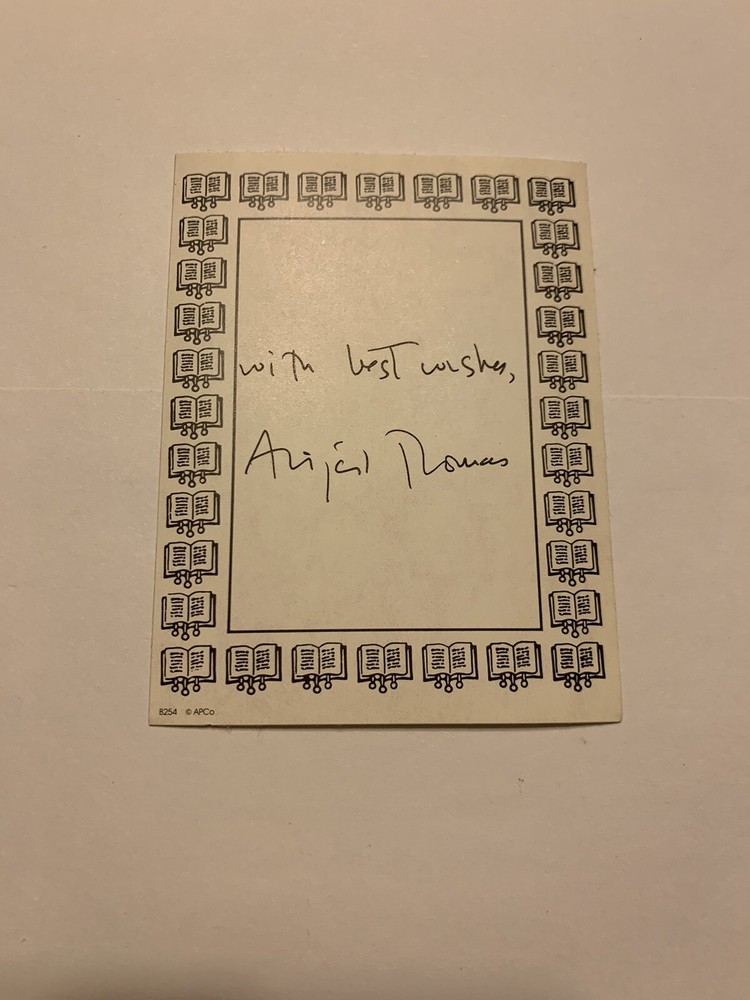 with best wishes,
Abigail Thomas
8254 © APCo.